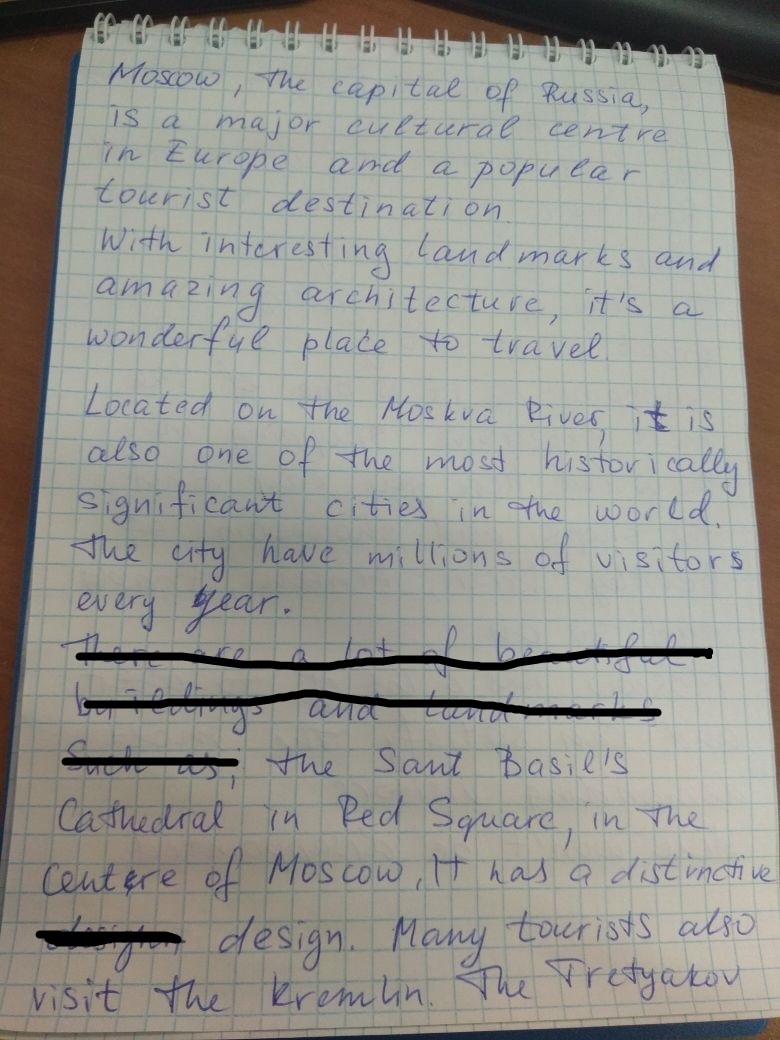 Moscow, the capital of Russia,
is a major cultural centre
in Europe and a popular
tourist destination.
With interesting landmarks and
amazing architecture, it's a
wonderful place to travel.
Located on the Moskva River, it is
also one of the most historically
significant cities in the world.
The city have millions of visitors
every year.
There are a lot of beautiful
buildings and landmarks
Such as; the Sant Basil's
Cathedral in Red Square, in the
Centre of Moscow, It has a distinctive
design. Many tourists also
visit the Kremlin. The Tretyakov